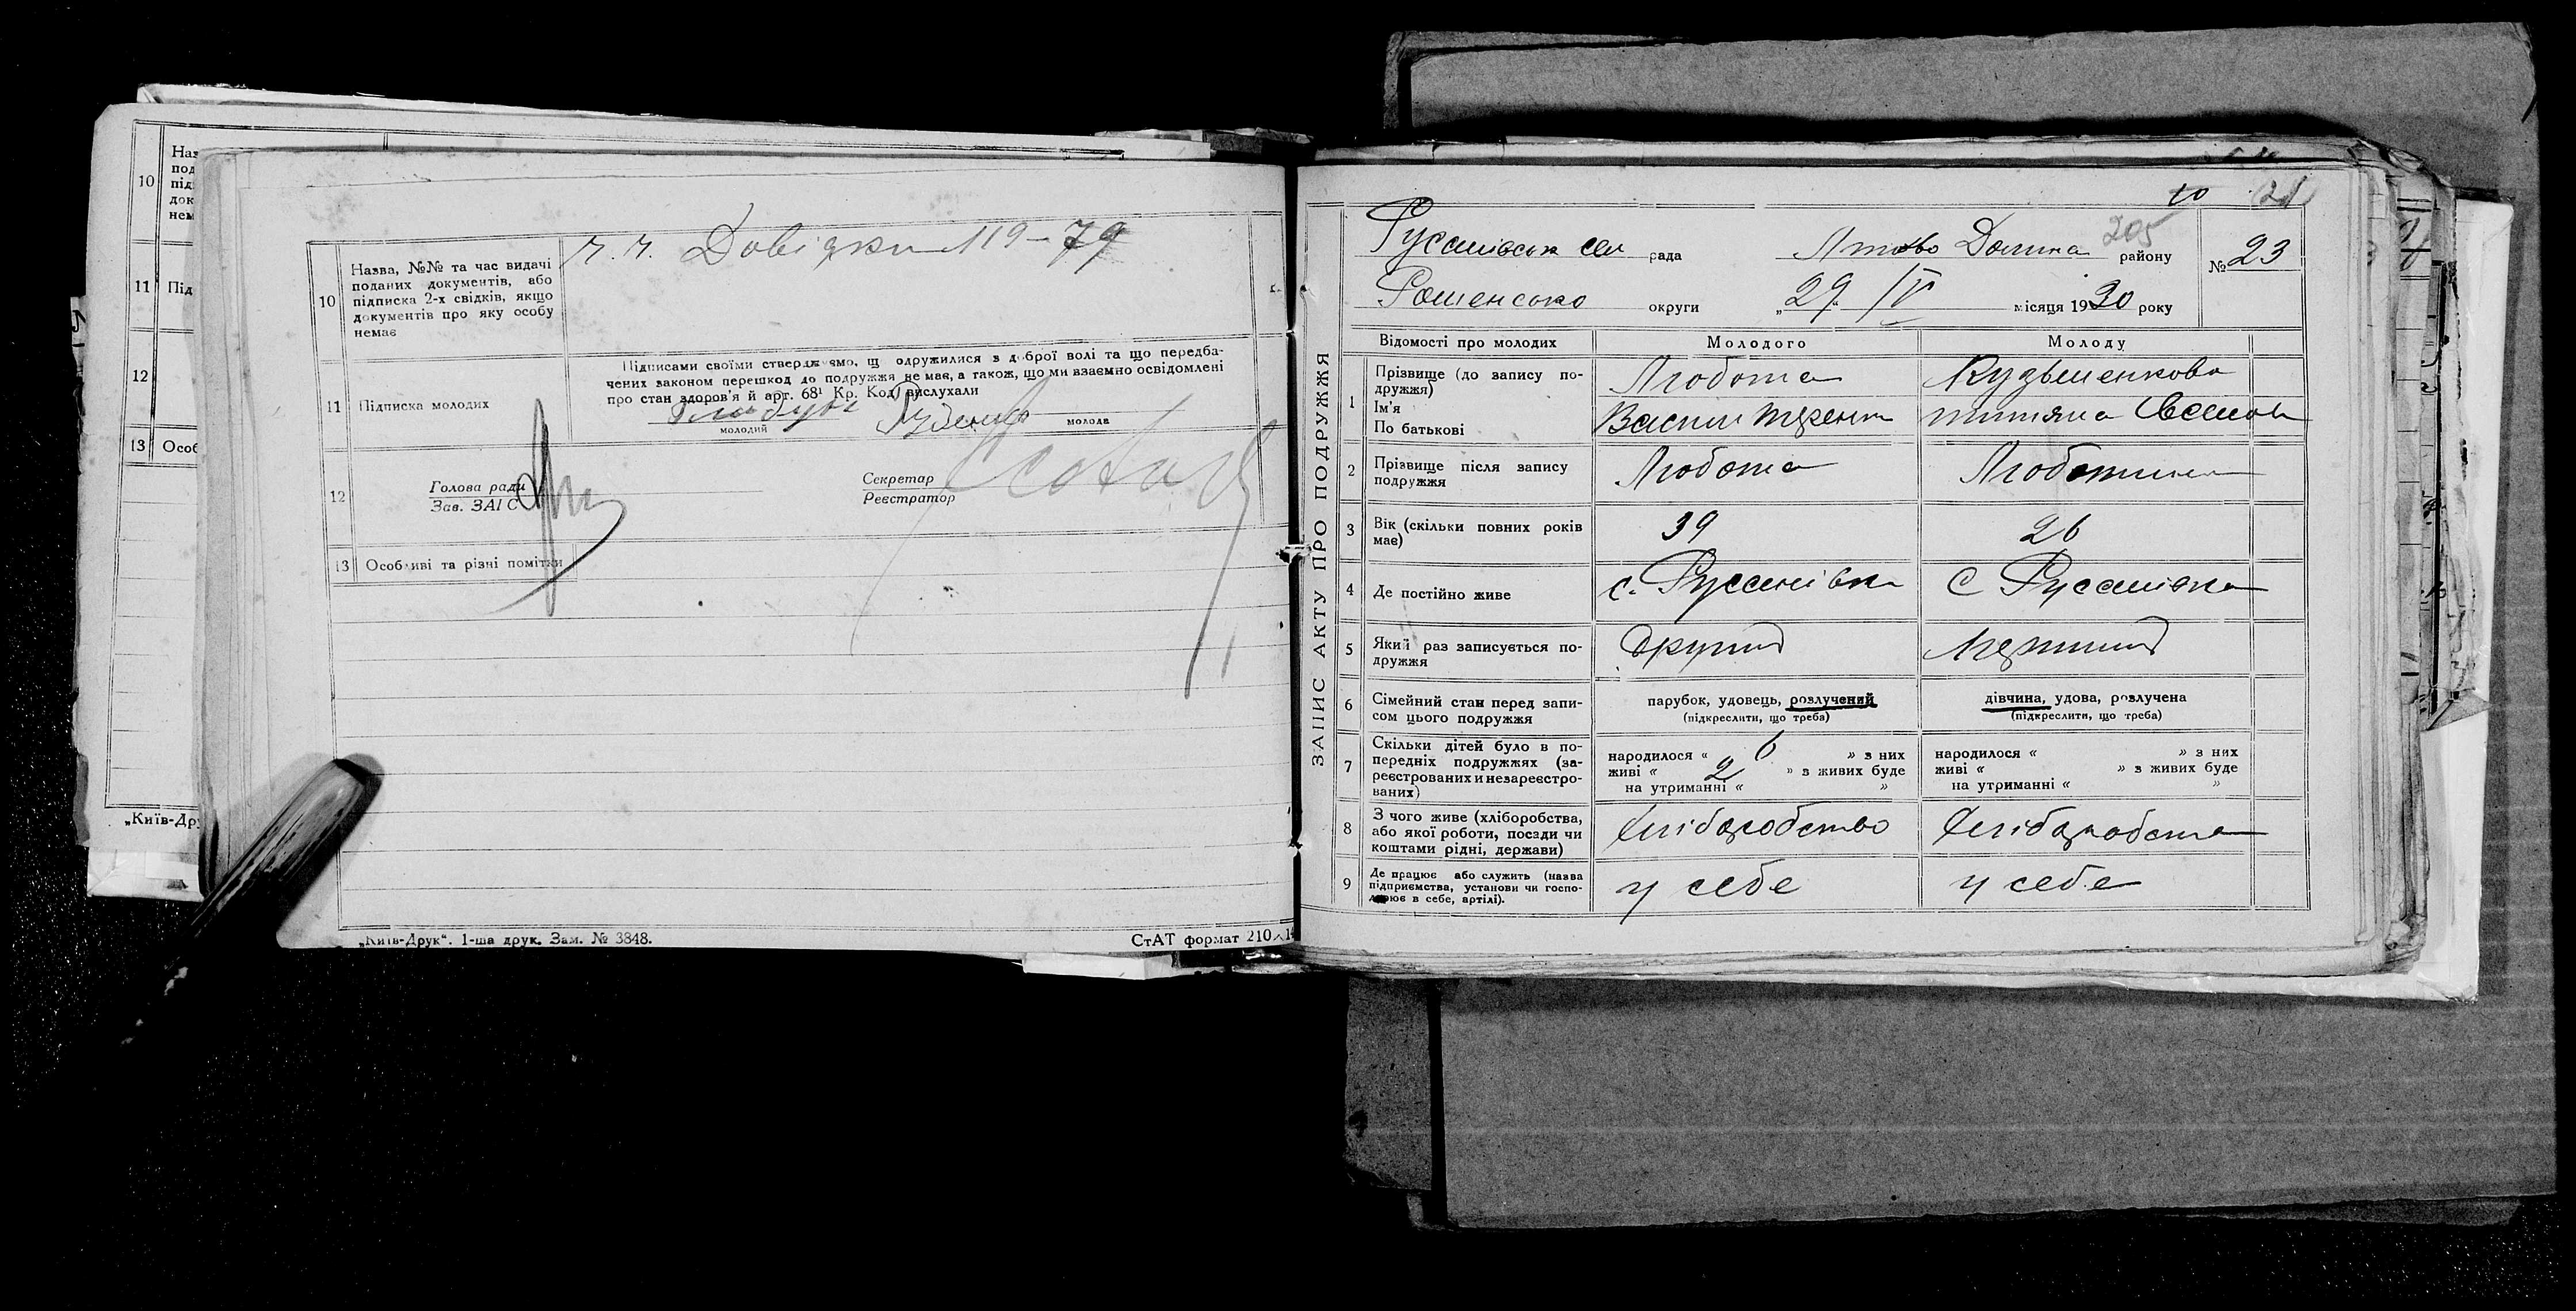 10
Наз
под
під
док
нем
11 Під
12
13 Особ
„Київ-Др
10 Назва, №№ та час видачі
поданих документів, або
підписка 2-х свідків, якщо
документів про яку особу
немає
Довідки 119-79
11 Підписка молодих
Підписами своїми стверджуємо, щ одружилися з доброї волі та що передба-
чених законом перешкод до подружжя не має, а також, що ми взаємно освідомлені
про стан здоров'я й арт. 68¹ Кр. Код вислухали
молодий молода
12 Голова ради
Зав. ЗАГС
Секретар
Реєстратор
13 Особливі та різні помітки
„Київ-Друк“. 1-ша друк. Зам. № 3848.
СтАТ формат 210×14
ЗАПИС АКТУ ПРО ПОДРУЖЖЯ
10
205
Русанівськ сел рада Долина району
№ 23
округи „29 IV місяця 1930 року
Відомості про молодих Молодого Молоду
1 Прізвище (до запису по-
дружжя)
Ім'я
По батькові
Любота Кузьменкова
Васил Терент
2 Прізвище після запису
подружжя
Любота
3 Вік (скільки повних років
має)
39 26
4 Де постійно живе
с. Русанівка С Русанівка
5 Який раз записується по-
дружжя
другий
6 Сімейний стан перед запи-
сом цього подружжя
парубок, удовець, розлучений
(підкреслити, що треба)
дівчина, удова, розлучена
(підкреслити, що треба)
7 Скільки дітей було в по-
передніх подружжях (за-
реєстрованих и незареєстро-
ваних)
народилося « 6 » з них
живі « 2 » з живих буде
на утриманні « »
народилося « » з них
живі « » з живих буде
на утриманні « »
8 З чого живе (хліборобства,
або якої роботи, посади чи
коштами рідні, держави)
хліборобство хліборобства
9 Де працює або служить (назва
підприємства, установи чи госпо-
дарює в себе, артілі).
у себе у себе